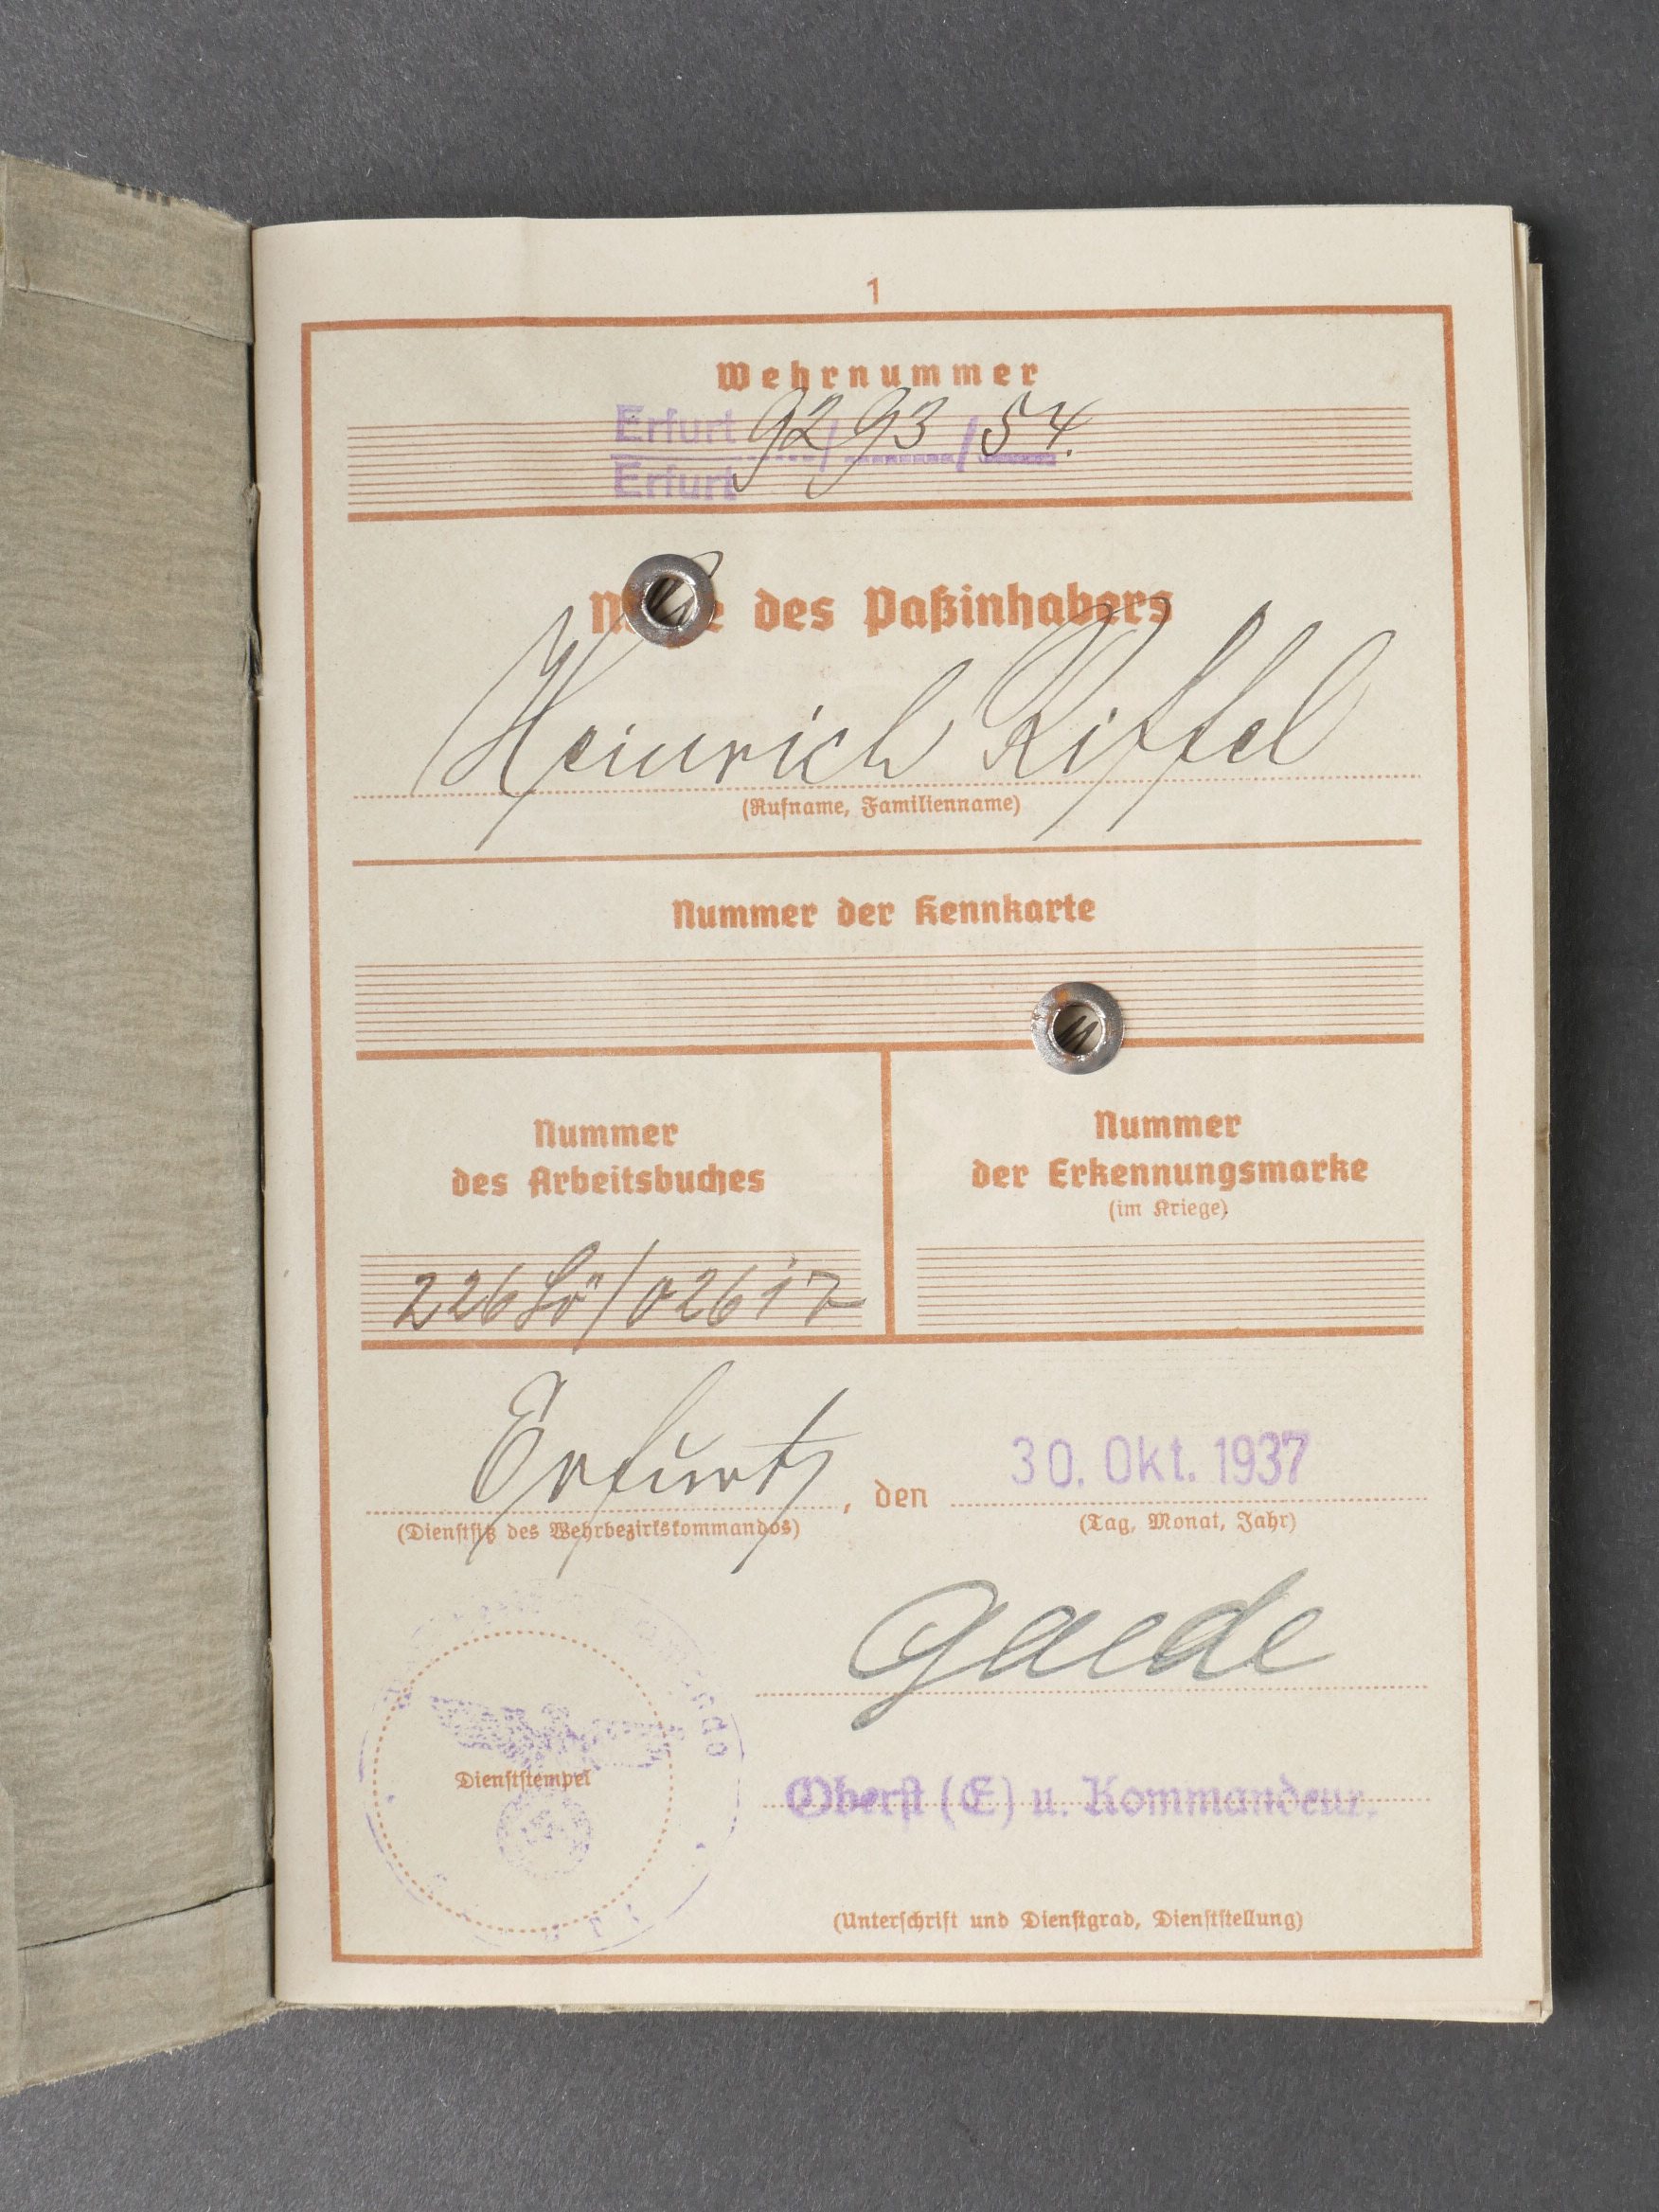 1
Wehrnummer
Erfurt 92/93/54.
Erfurt
des Paßinhabers
Heinrich Riffel
(Rufname, Familienname)
Nummer der Kennkarte
Nummer
des Arbeitsbuches
Nummer
der Erkennungsmarke
(im Kriege)
226 Lö/02617
Erfurt, den 30. Okt. 1937
(Dienstsitz des Wehrbezirkskommandos) (Tag, Monat, Jahr)
Gaede
Dienststempel
Oberst (E) u. Kommandeur.
(Unterschrift und Dienstgrad, Dienststellung)